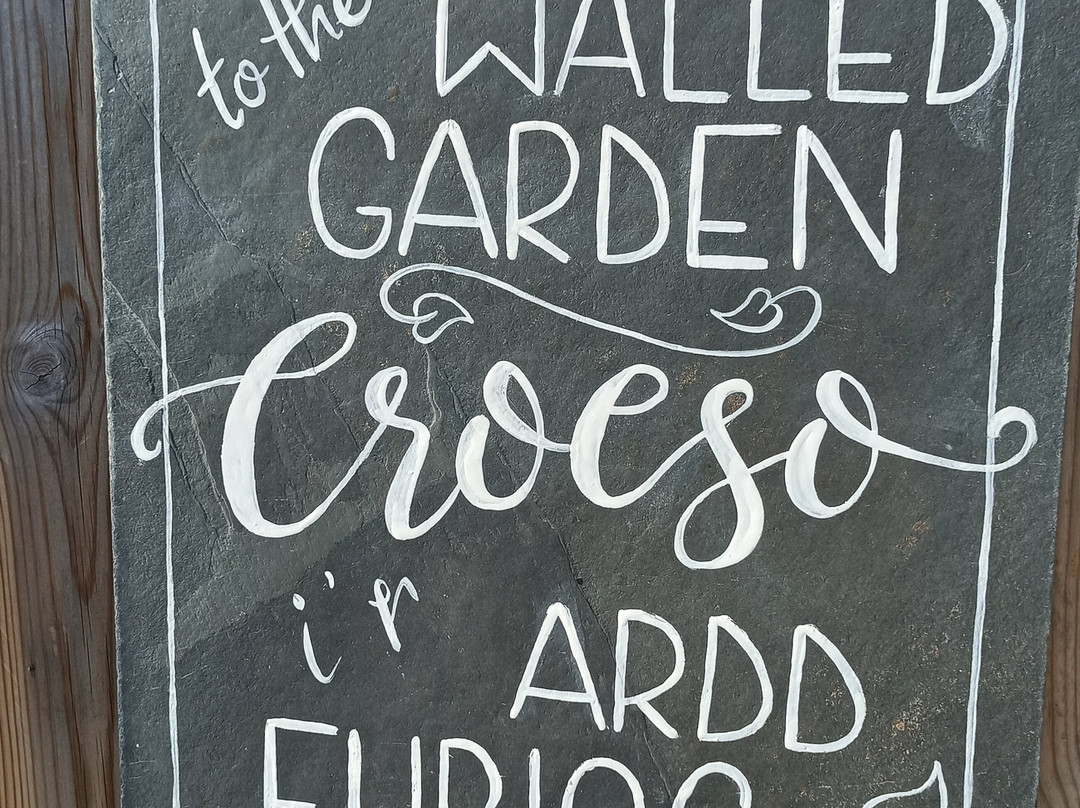 to the WALLED
GARDEN
Croeso
i'r ARDD